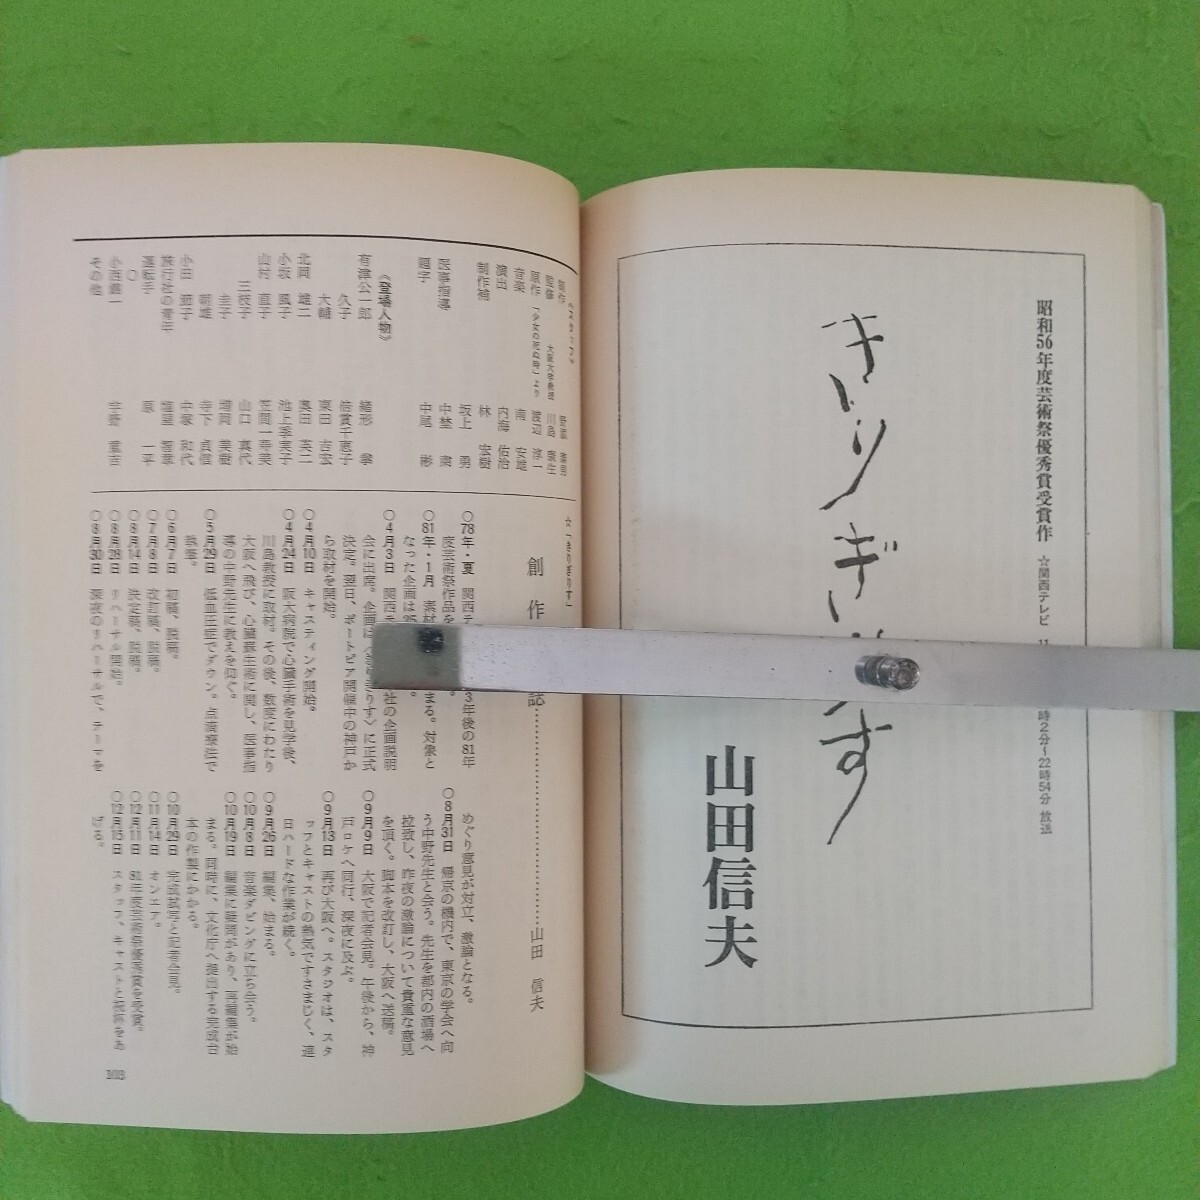 昭和56年度芸術祭優秀賞受賞作
☆関西テレビ
時2分〜22時54分 放送
きりぎりす
山田信夫
制作
監修 大阪大学教授 川島康生
原作 「少女の死ぬ時」より 渡辺淳一
音楽 南 安雄
演出 内海佑治
制作補 林 宏樹
坂上 勇
医事指導 中埜 粛
題字 中尾 彬
《登場人物》
有津公一郎 緒形 拳
久子 倍賞千恵子
大輔 東田吉宏
北岡 雄二 奥田英二
小坂 風子 池上季実子
山村 直子 笠間一寿美
三枝子 山口真代
圭子 増岡美樹
朝雄 寺下貞信
小田 節子 中塚和代
旅行社の青年 塩里智章
運転手 原 一平
〇
小西龍二 宇野重吉
その他
☆「きりぎりす」
創作
誌
山田 信夫
〇78年・夏 関西テ
3年後の81年
度芸術祭作品を
〇81年・1月 素材
まる。対象と
なった企画は25
〇4月3日 関西テ
社の企画説明
会に出席。企画は〈きりぎりす〉に正式
決定。翌日、ポートピア開催中の神戸か
ら取材を開始。
〇4月10日 キャスティング開始。
〇4月24日 阪大病院で心臓手術を見学後、
川島教授に取材。その後、数度にわたり
大阪へ飛び、心臓蘇生術に関し、医事指
導の中野先生に教えを仰ぐ。
〇5月29日 低血圧症でダウン。点滴療法で
執筆。
〇6月7日 初稿、脱稿。
〇7月8日 改訂稿、脱稿。
〇8月14日 決定稿、脱稿。
〇8月28日 リハーサル開始。
〇8月30日 深夜のリハーサルで、テーマを
めぐり意見が対立、激論となる。
〇8月31日 帰京の機内で、東京の学会へ向
う中野先生と会う。先生を都内の酒場へ
拉致し、昨夜の激論について貴重な意見
を頂く。脚本を改訂し、大阪へ送稿。
〇9月9日 大阪で記者会見。午後から、神
戸ロケへ同行、深夜に及ぶ。
〇9月13日 再び大阪へ。スタジオは、スタ
ッフとキャストの熱気ですさまじく、連
日ハードな作業が続く。
〇9月26日 編集、始まる。
〇10月8日 音楽ダビングに立ち合う。
〇10月19日 編集に疑問があり、再編集が始
まる。同時に、文化庁へ提出する完成台
本の作製にかかる。
〇10月29日 完成試写と記者会見。
〇11月14日 オンエア。
〇12月11日 81年度芸術祭優秀賞を受賞。
〇12月15日 スタッフ、キャストと祝杯をあ
げる。
103